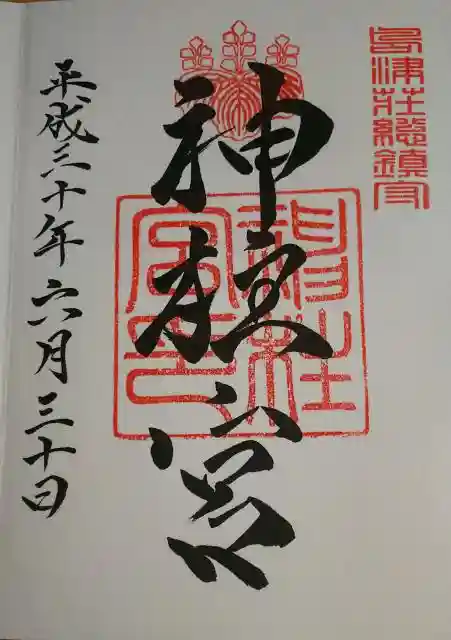 島津荘総鎮守
神柱宮
神柱宮印
平成三十年六月三十日